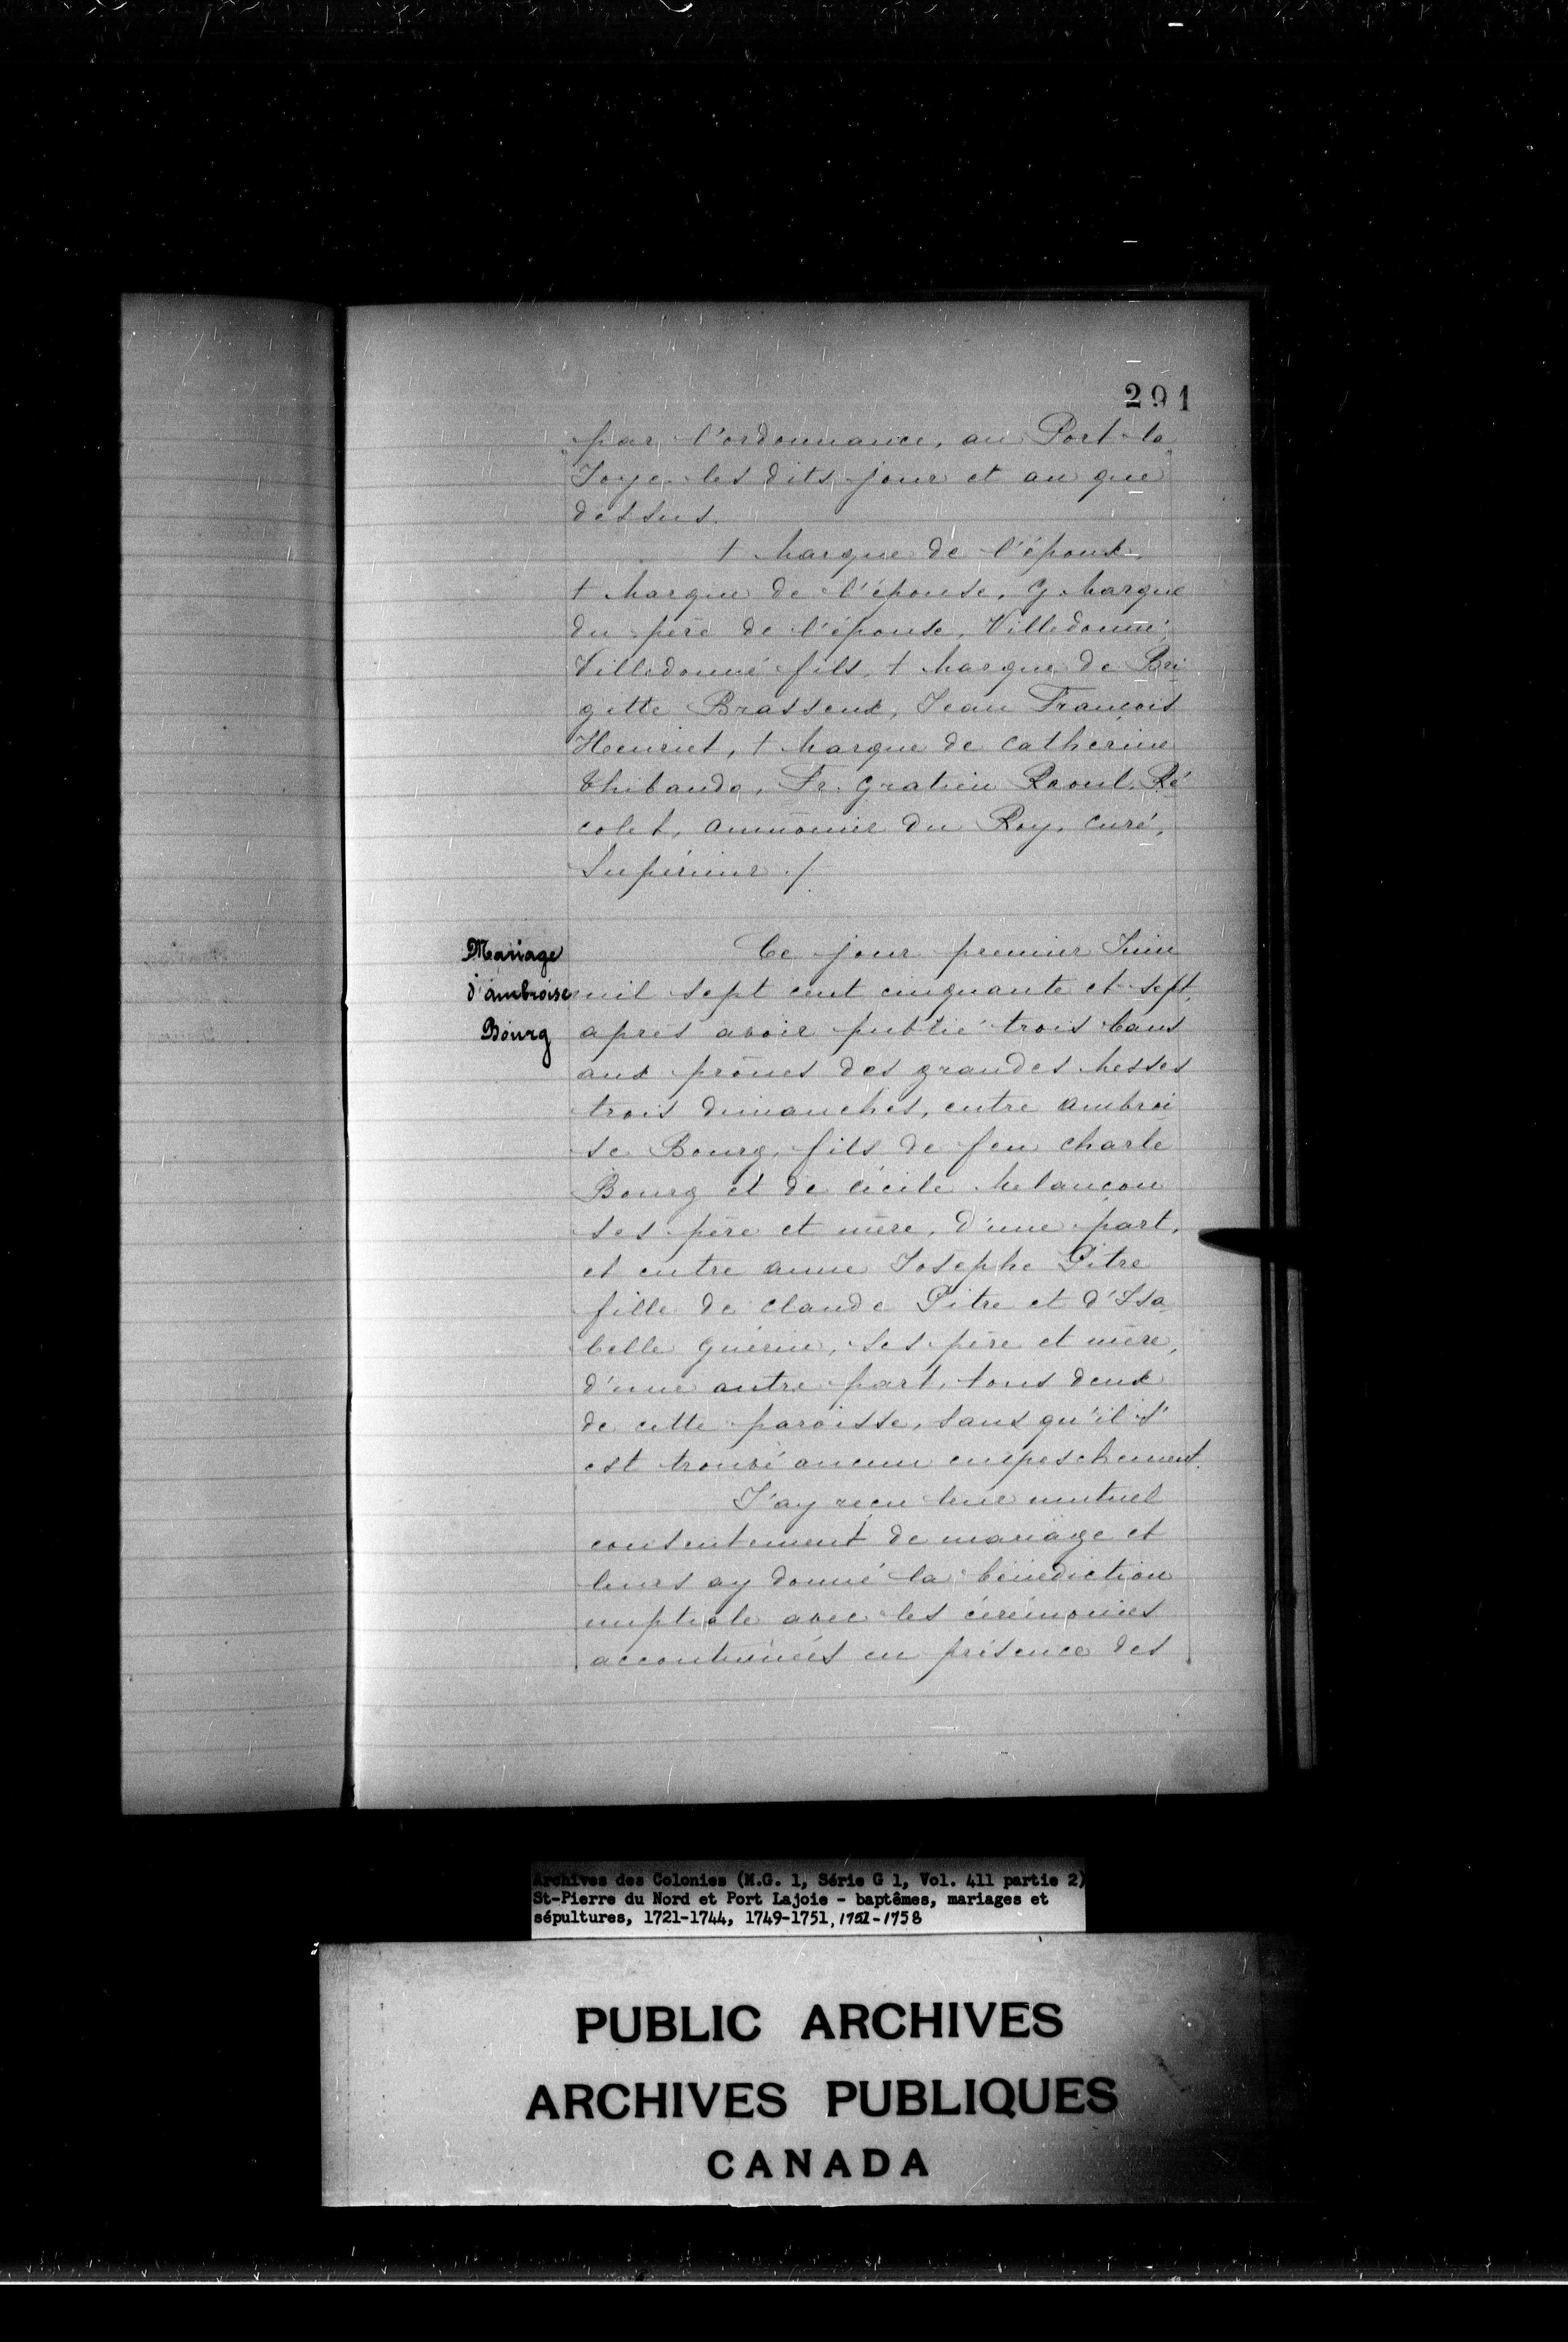 291
par l'ordonnance, au Port-la
Joye les dits jour et an que
dessus.
† Marque de l'époux,
† Marque de l'épouse, G Marque
du père de l'épouse, Villedonné,
Villedonné fils, † Marque de Bri
gitte Brasseux, Jean François
Henriet, † Marque de Catherine
Thibaudo, Fr. Gratien Raoul, Ré
colet, aumônier du Roy, curé,
Supérieur ./.
Mariage
d'ambroise
Bourg
Ce jour premier Juin
mil sept cent cinquante et sept,
après avoir publié trois bans
aux prônes des grandes Messes
trois dimanches, entre ambroi
se Bourg, fils de feu charle
Bourg et de cécile Melançon
ses père et mère, d'une part,
et entre anne Josephe Pitre
fille de Claude Pitre et d'Isa
belle guérin, ses père et mère,
d'une autre part, tous deux
de cette paroisse, sans qu'il s'
est trouvé aucun empeschement.
J'ay reçu leur mutuel
consentement de mariage et
leurs ay donné la bénédiction
nuptiale avec les cérémonies
accoutumées en présence des
Archives des Colonies (M.G. 1, Série G 1, Vol. 411 partie 2)
St-Pierre du Nord et Port Lajoie - baptêmes, mariages et
sépultures, 1721-1744, 1749-1751, 1751-1758
PUBLIC ARCHIVES
ARCHIVES PUBLIQUES
CANADA